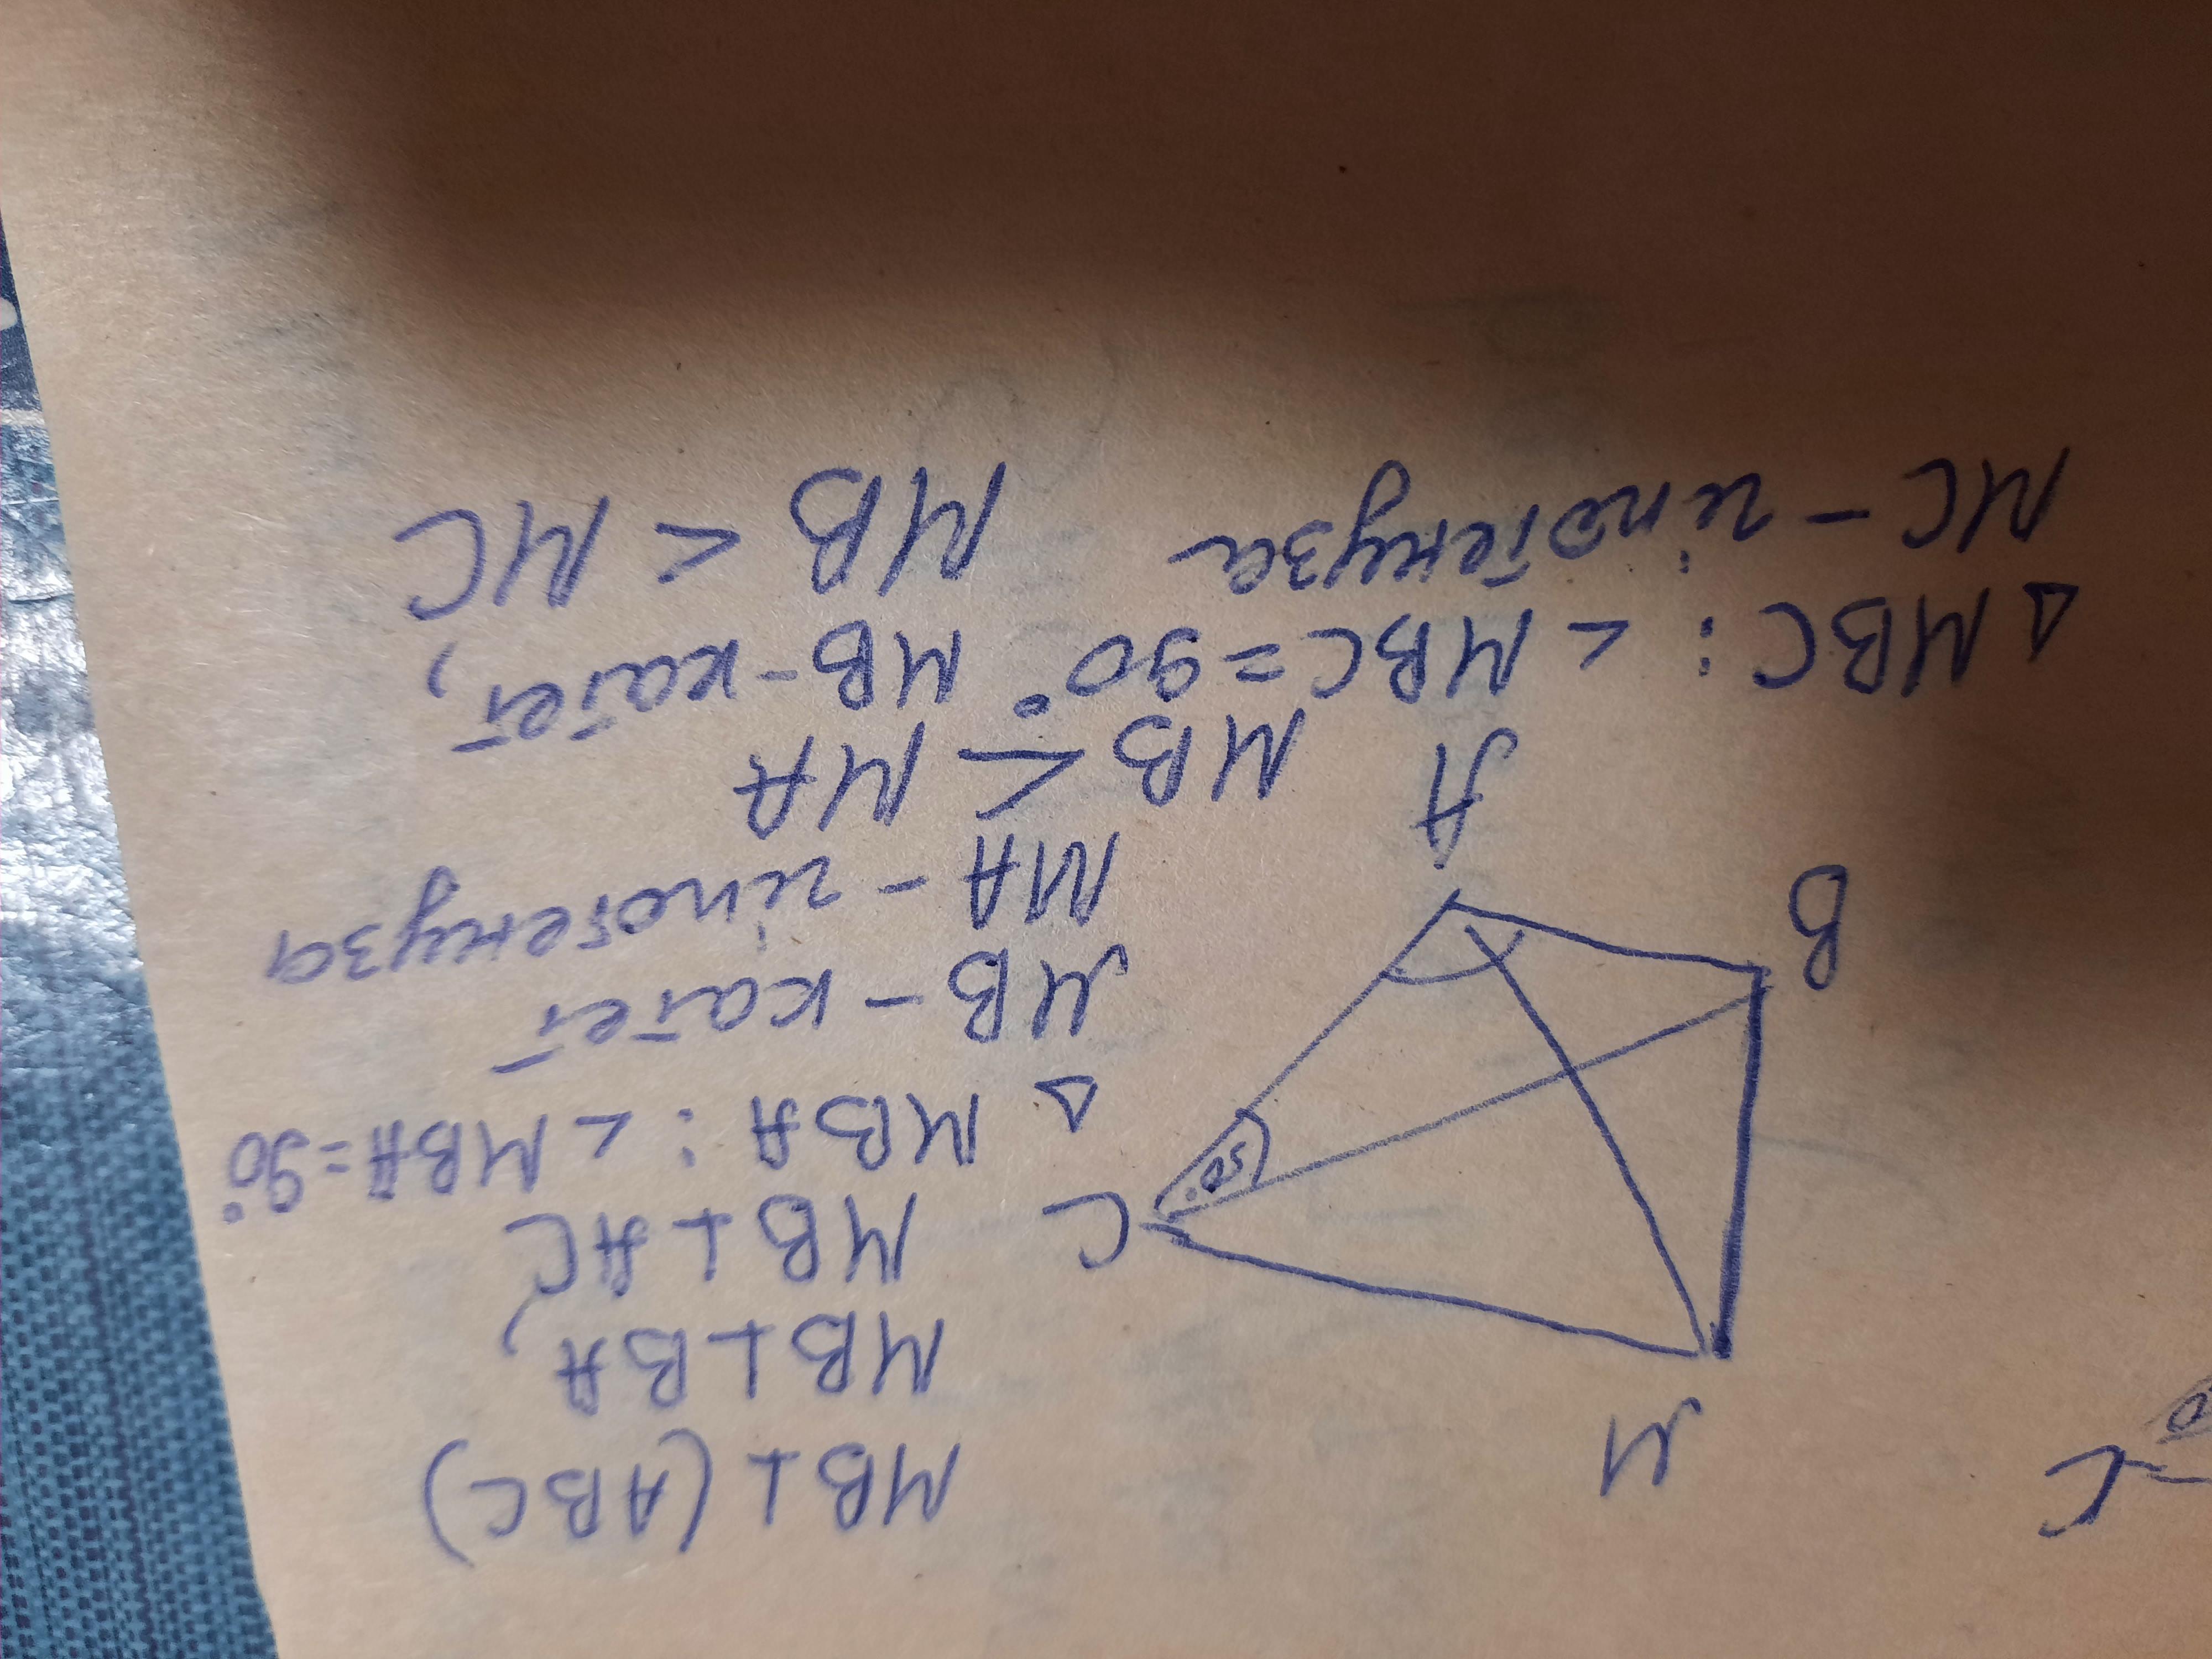 MB⊥(ABC)
MB⊥BA,
MB⊥AC
△MBA: <MBA=90°
MB-катет
MA-гіпотенуза
MB<MA
△MBC: <MBC=90° MB-катет,
MC-гіпотенуза MB<MC
M
C
50°
B
A
C